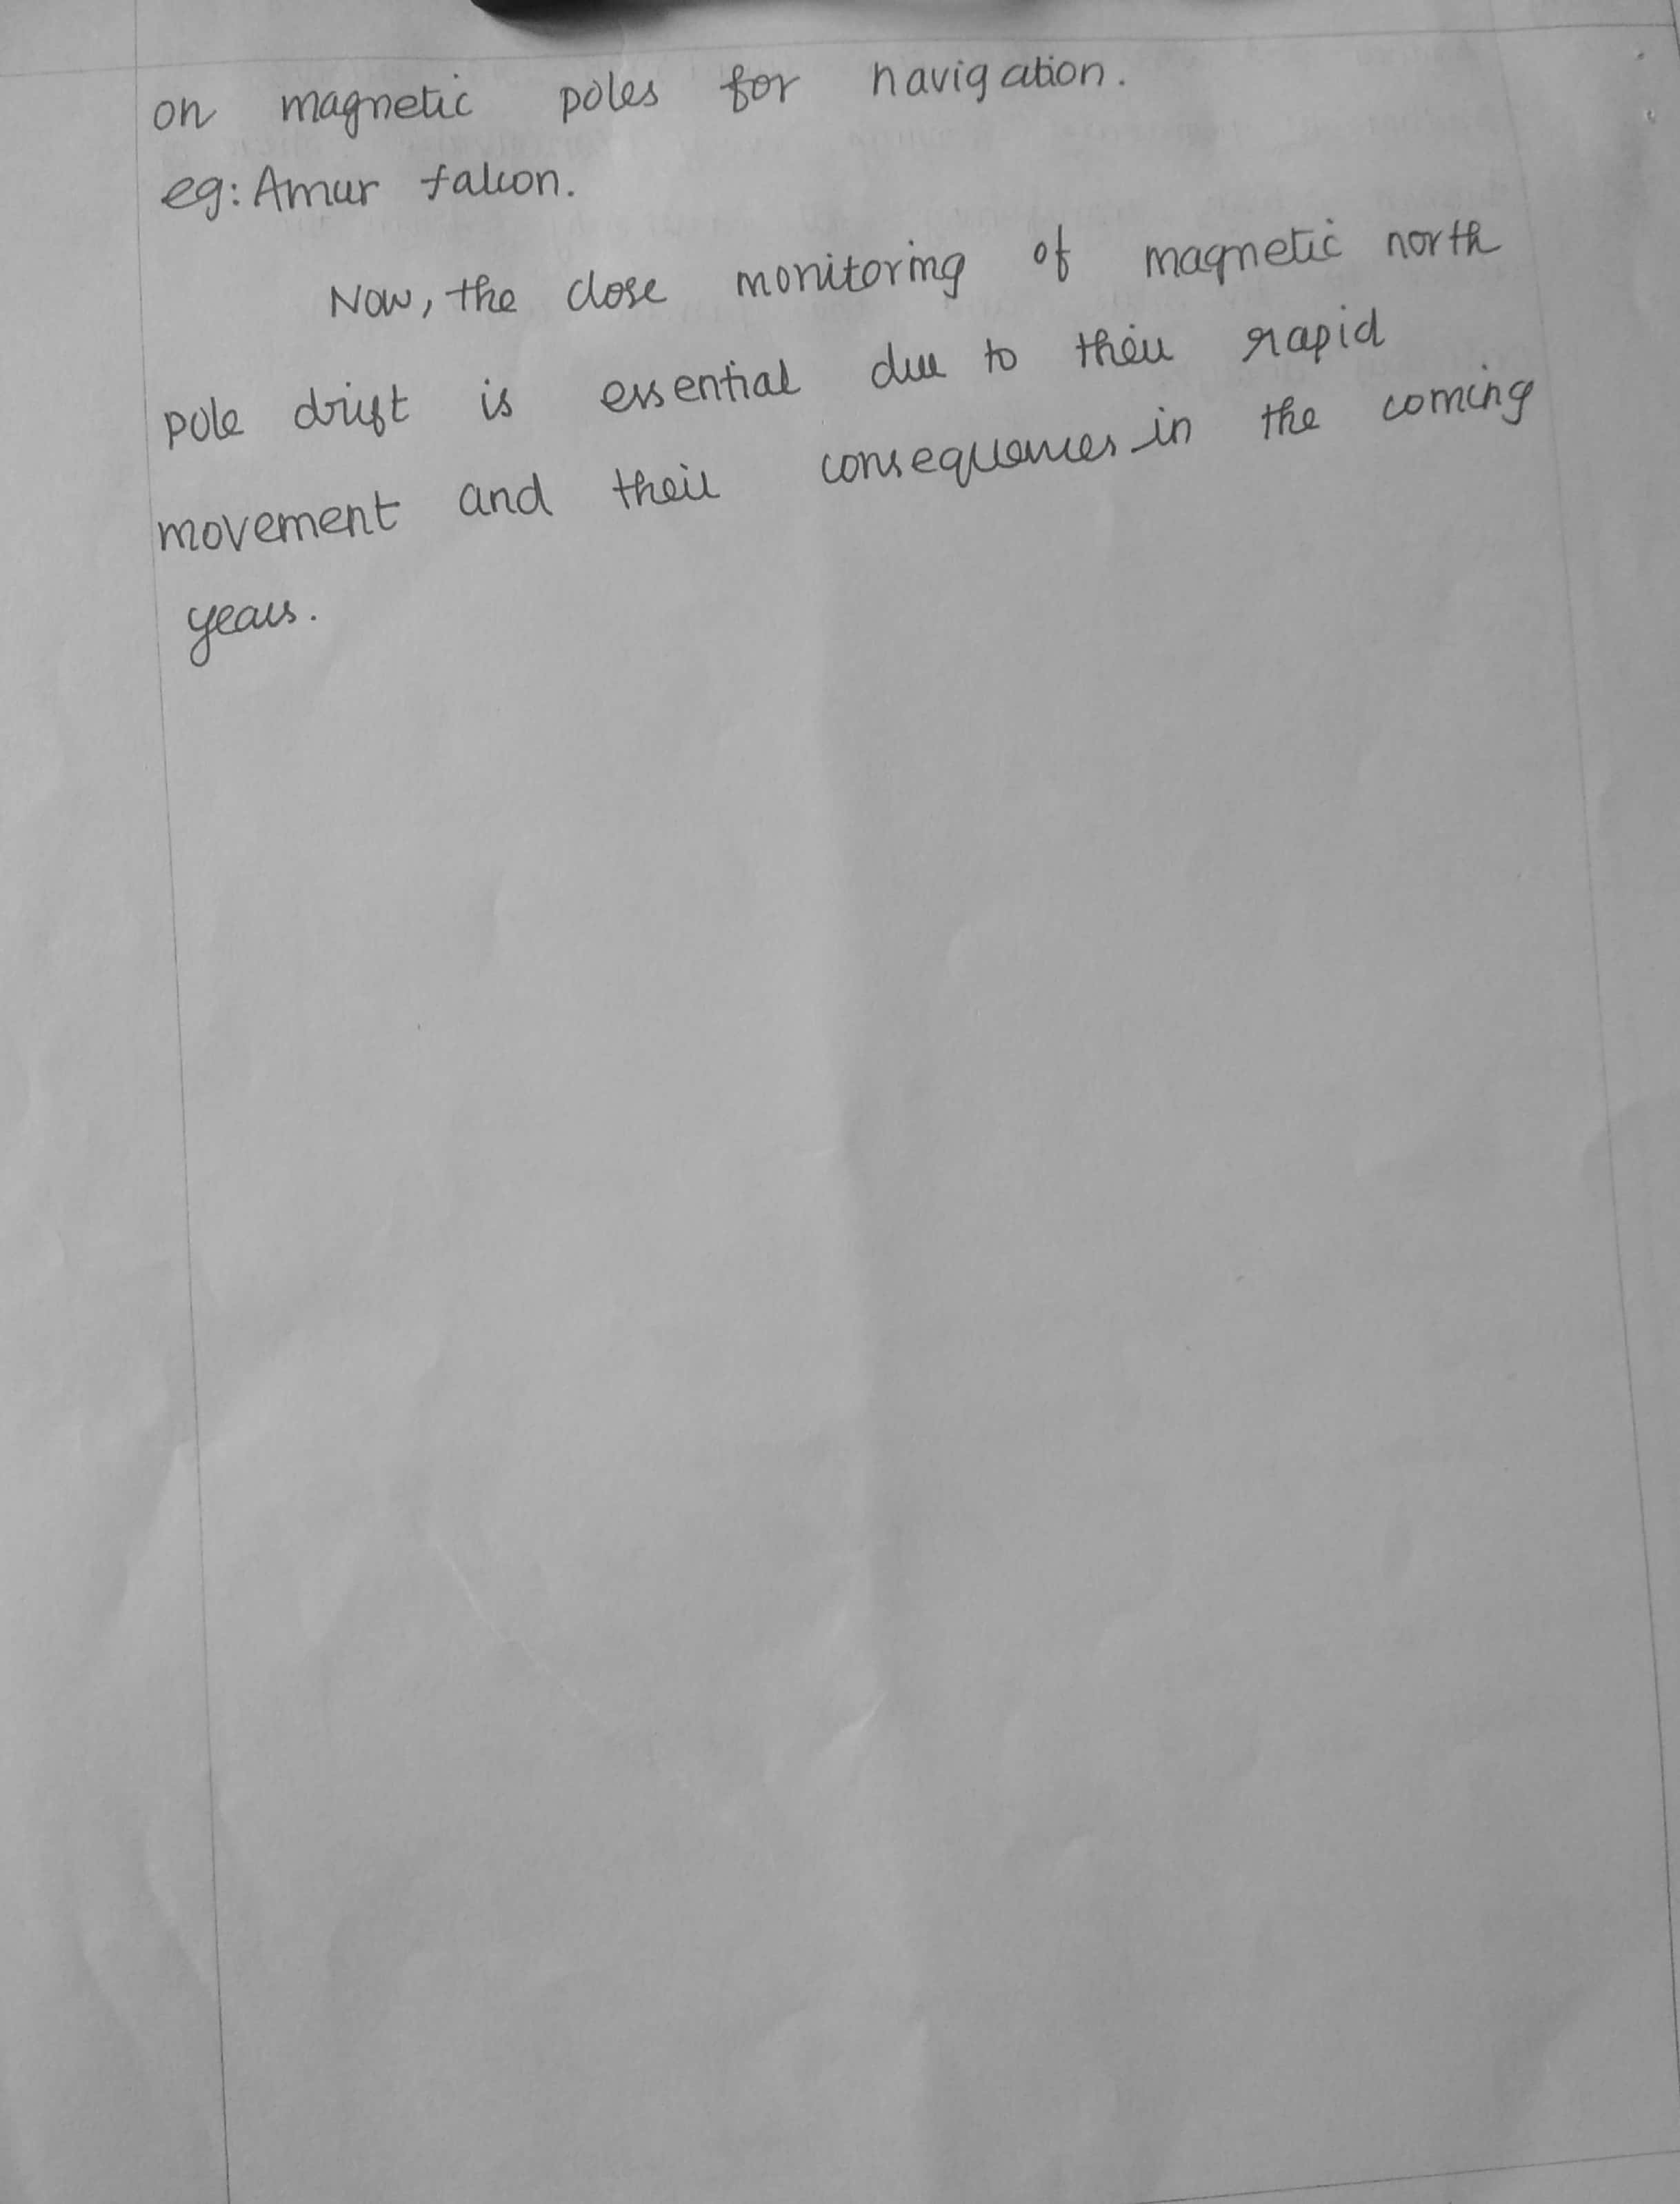 on magnetic poles for navigation.
eg: Amur falcon.
Now, the close monitoring of magnetic north
pole drift is essential due to their rapid
movement and their consequences in the coming
years.